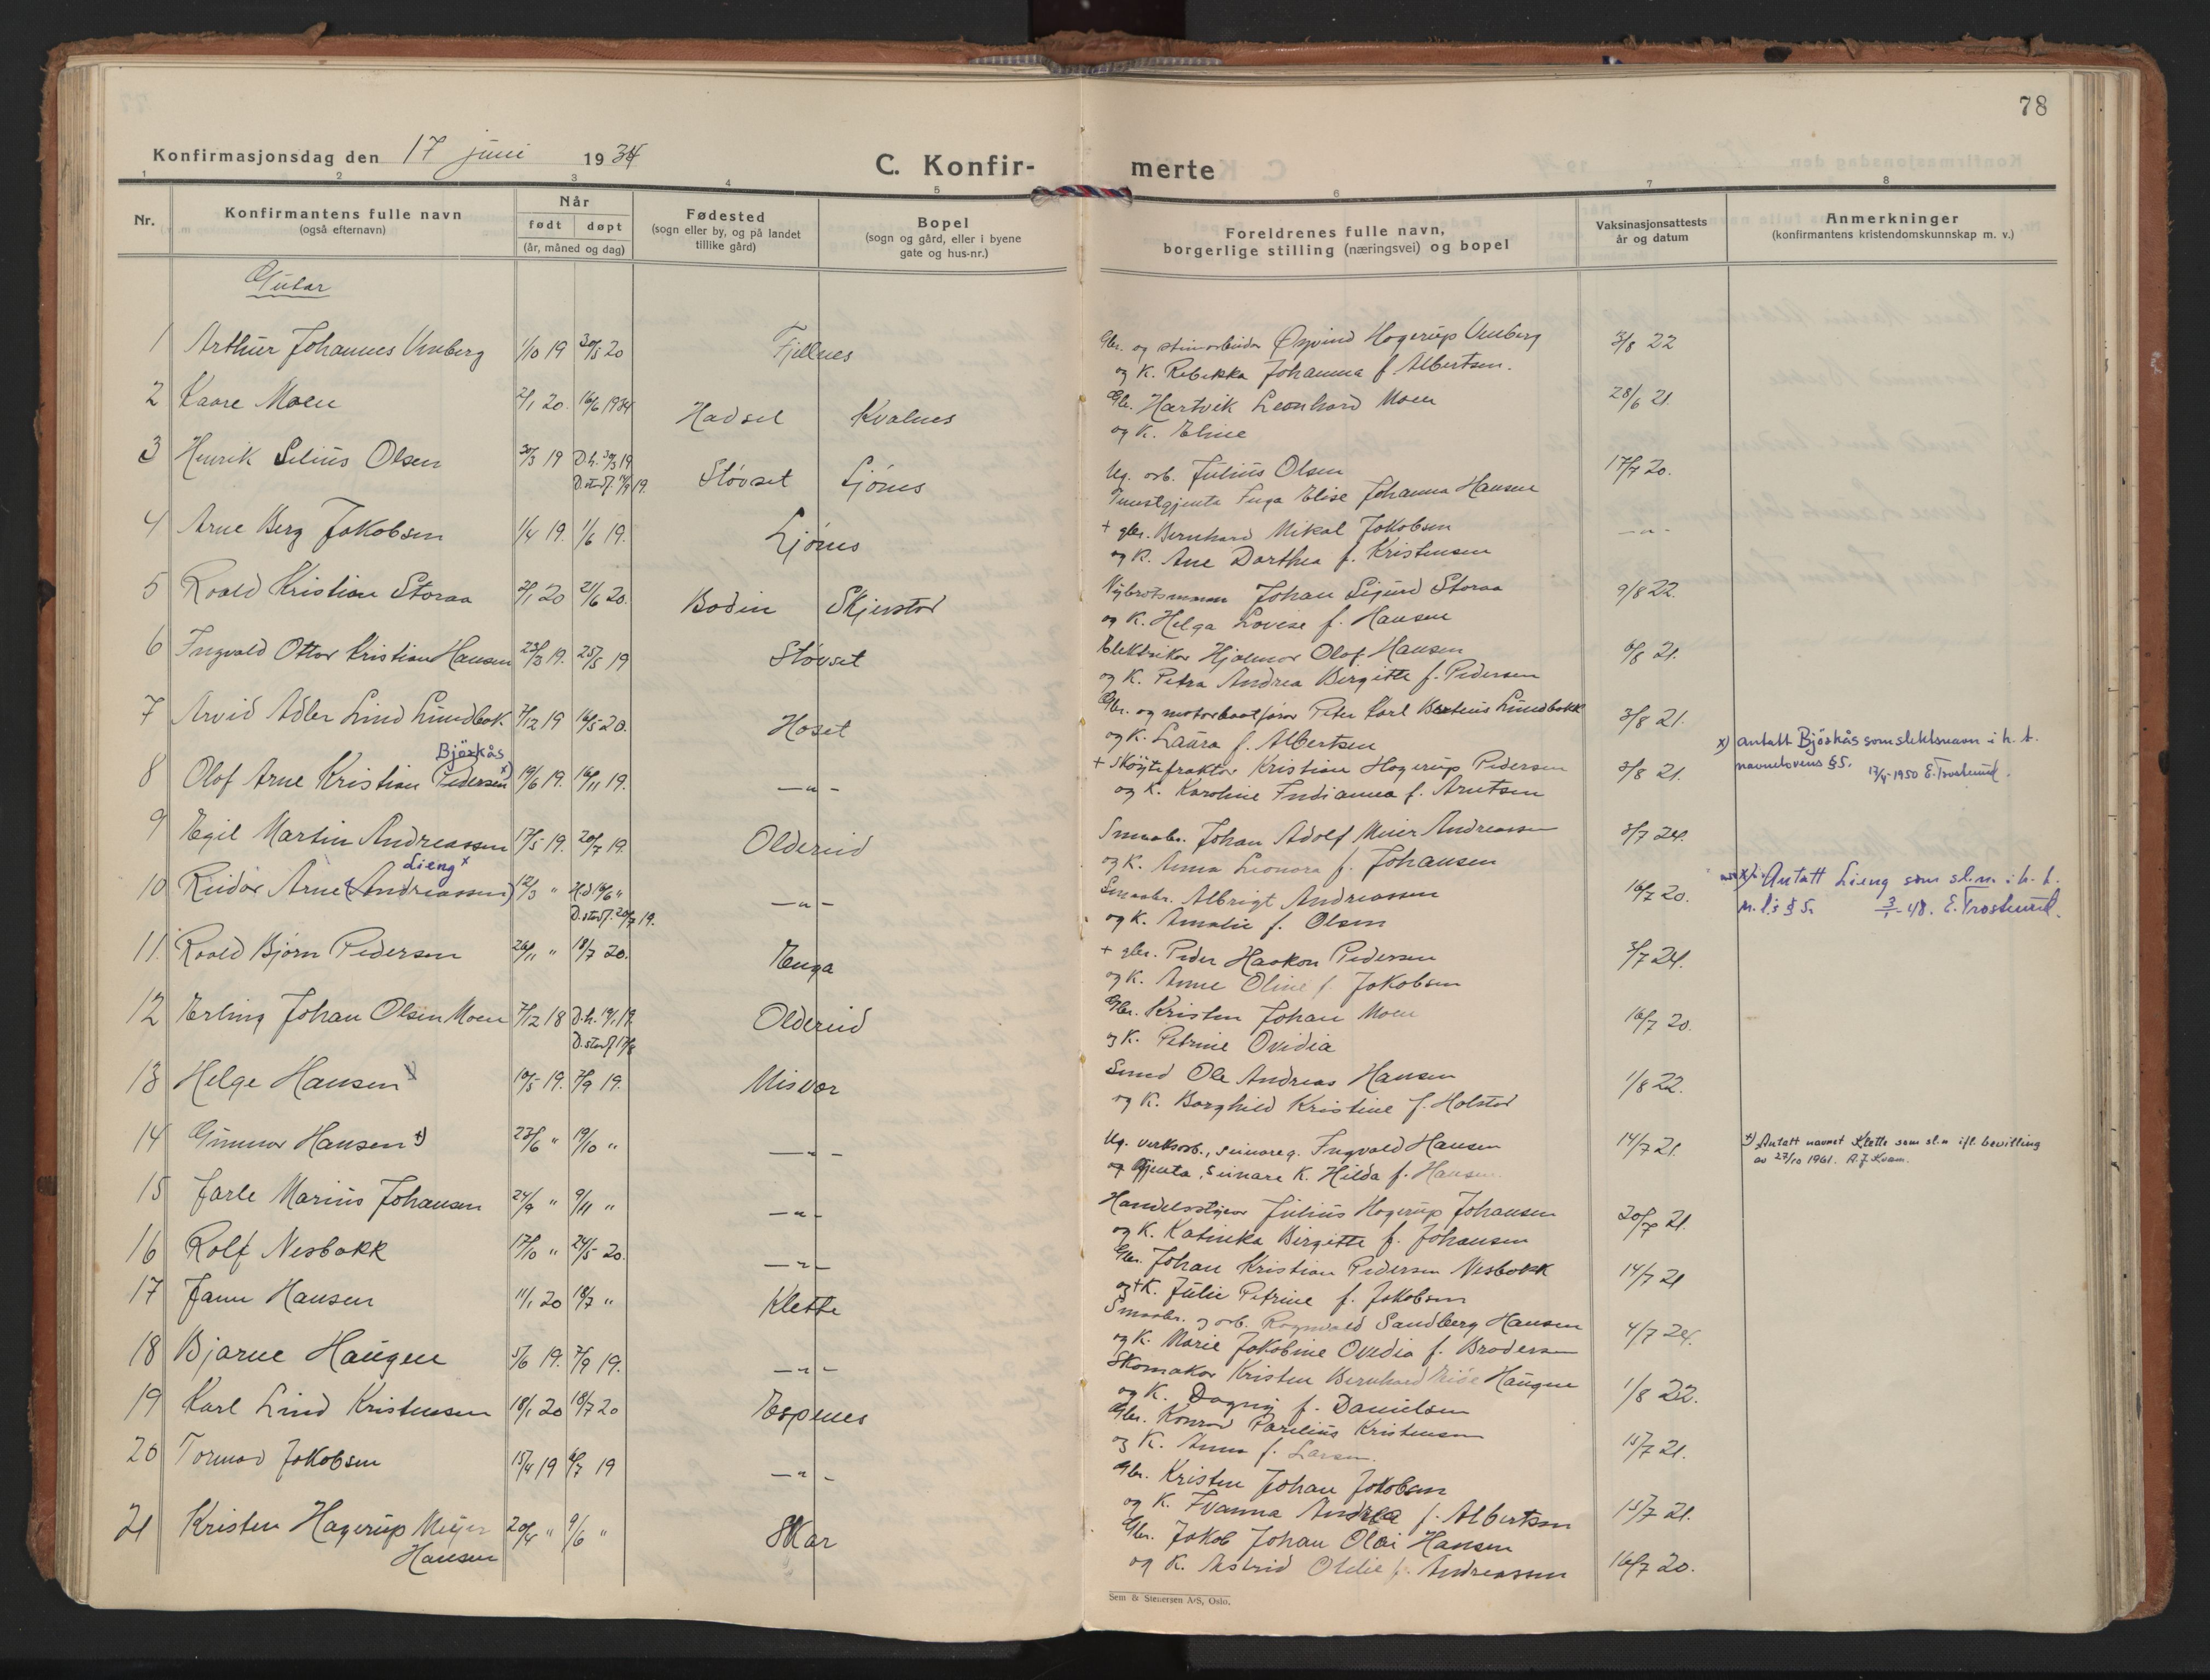 78
Konfirmasjonsdag den 17 juni 1934
C. Konfir- merte
1 2 3 4 5 6 7 8
Nr.
Konfirmantens fulle navn
(også efternavn)
Når
født døpt
(år, måned og dag)
Fødested
(sogn eller by, og på landet
tillike gård)
Bopel
(sogn og gård, eller i byene
gate og hus-nr.)
Foreldrenes fulle navn,
borgerlige stilling (næringsvei) og bopel
Vaksinasjonsattests
år og datum
Anmerkninger
(konfirmantens kristendomskunnskap m. v.)
Gutar
1 Arthur Johannes Venberg 1/10 19 30/5 20 Fjellnes Gbr. og Øyvind Hagerup Venberg 3/8 22
og K. Rebekka Johanna f. Albertsen.
2 Kaare Moen 2/1 20. 16/6 1934 Hadsel Kvalnes Gbr. Hartvik Leonhard Moen 28/6 21.
og K. Eline
3 Henrik Selius Olsen 30/3 19 D.h. 30/3 19 Støvset Ljønes Ug. arb. Julius Olsen 17/7 20.
D. stadf. 7/9 19. Tenestgjenta Inga Elise Johanna Hansen
4 Arne Berg Jakobsen 1/4 19. 1/6 19. Ljønes + gbr. Bernhard Mikal Jakobsen — " —
og K. Ane Dorthea f. Kristensen
5 Roald Kristian Storaa 2/1 20 21/6 20. Bodin Skjerstad Nybrotsmann Johan Sigurd Storaa 9/8 22.
og K. Helga Lovise f. Hansen
6 Ingvald Ottar Kristian Hansen 23/3 19. 25/5 19 Støvset Elektriker Hjalmar Olaf Hansen 6/8 21.
og K. Petra Andrea Birgitte f. Pedersen
7 Arvid Adler Lind Lundbak. 7/12 19 16/5 20. Hoset Gbr. og motorbaatfører Peter Karl Lundbakk 3/8 21.
og K. Laura f. Albertsen
Bjøråkås
8 Olaf Arne Kristian (Pedersen x) 19/6 19. 16/11 19. — " — + Skøytefraktar Kristian Hagerup Pedersen 3/8 21.
og K. Karoline Indianna f. Arntsen
x) antatt Bjøråkås som slektsnavn i h. t.
navnelovens § 5. 1950 E. Trostrud.
9 Egil Martin Andreassen 17/5 19. 20/7 19. Oldereid Smaabr. Johan Adolf Meier Andreassen 3/7 24.
og K. Anna Leonora f. Johansen
Lieng x
10 Reidar Arne (Andreassen) 12/3 " H.d 19/6 " — " — Smaabr. Albrigt Andreassen 16/7 20.
D. stadf. 20/7 19. og K. Amalie f. Olsen
x) Antatt Lieng som sl.n. i h. t.
n. l.s § 5. 3/1-48. E. Trostrud.
11. Roald Bjørn Pedersen 26/11 " 18/7 20. Enga + gbr. Peder Haakon Pedersen 3/7 24.
og K. Anne Oline f. Jakobsen
12 Erling Johan Olsen Moen 7/12 18 D.h. 19. Oldereid Gbr. Kristen Johan Moen 16/7 20.
D. stadf 17/8 og K. Petrine Ovidia
13 Helge Hansen 10/5 19. 7/9 19. Misvær Smed Ole Andreas Hansen 1/8 22.
og K. Borghild Kristine f. Holstad
14 Gunnar Hansen +) 23/6 " 19/10 " — " — Ug. verksarb., seinare g. Ingvald Hansen 14/7 21.
og Gjenta, seinare K. Hilda f. Hansen.
+) Antatt navnet Klette som sl.n ifl. bevilling
av 27/10 1961. A. J. Kvam.
15 Jarle Marius Johansen 24/9 " 9/11 " — " — Handelsstyrer Julius Hagerup Johansen 20/7 21.
og K. Katinka Birgitte f. Johansen
16 Rolf Nesbakk 17/10 " 24/5 20. — " — Gbr. Johan Kristian Pedersen Nesbakk 14/7 21
og + K. Julie Petrine f. Jakobsen
17 Jann Hansen 11/1 20 18/7 " Klette Smaabr. og arb. Ragnvald Sandberg Hansen 4/7 24.
og K. Marie Jakobine Ovedia f. Brodersen
18 Bjarne Haugen 5/6 19. 7/9 19. — " — Skomaker Kristen Bernhard Haugen 1/8 22.
og K. Dagny f. Danielsen
19 Karl Lind Kristensen 18/1 20 18/7 20 Espenes Gbr. Konrad Parelius Kristensen 15/7 21.
og K. Anna f. Larsen.
20 Tormod Jakobsen 15/4 19 6/7 19 — " — Gbr. Kristen Johan Jakobsen 15/7 21.
og K. Ivanna Andrea f. Albertsen
21 Kristen Hagerup Meyer 20/4 " 9/6 " Skar Gbr. Jakob Johan Olai Hansen 16/7 20.
Hansen og K. Astrid Otelie f. Andreassen
Sem & Stenersen A/S, Oslo.